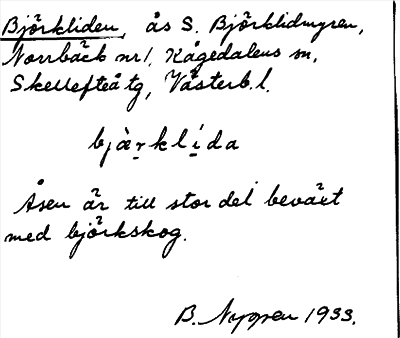 Björkliden, ås S. Björklidmyren,
Norrbäck nr 1, Kågedalens sn,
Skellefteå tg, Västerb. l.
bjär̤klí̤da
Åsen är till stor del beväxt
med björkskog.
B. Nygren 1933.